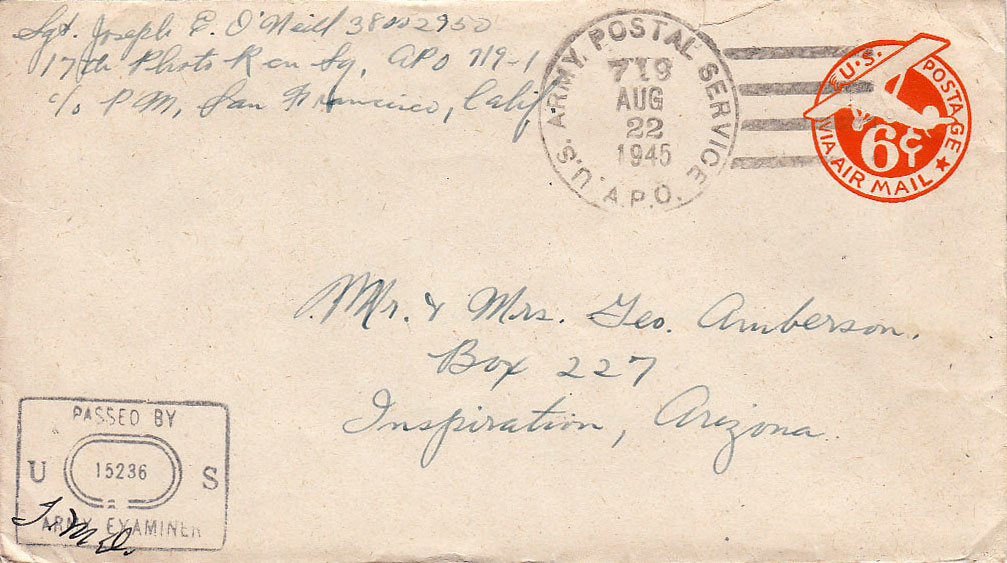 Sgt. Joseph E. O'Neill 38002950
17th Photo Rcn Sq, APO 719-1
c/o P M, San Francisco, Calif.
U.S. ARMY. POSTAL SERVICE
719
AUG
22
1945
A.P.O.
U.S. POSTAGE
6¢
VIA AIR MAIL
Mr. & Mrs. Geo. Amberson.
Box 227
Inspiration, Arizona.
PASSED BY
U 15236 S
ARMY EXAMINER